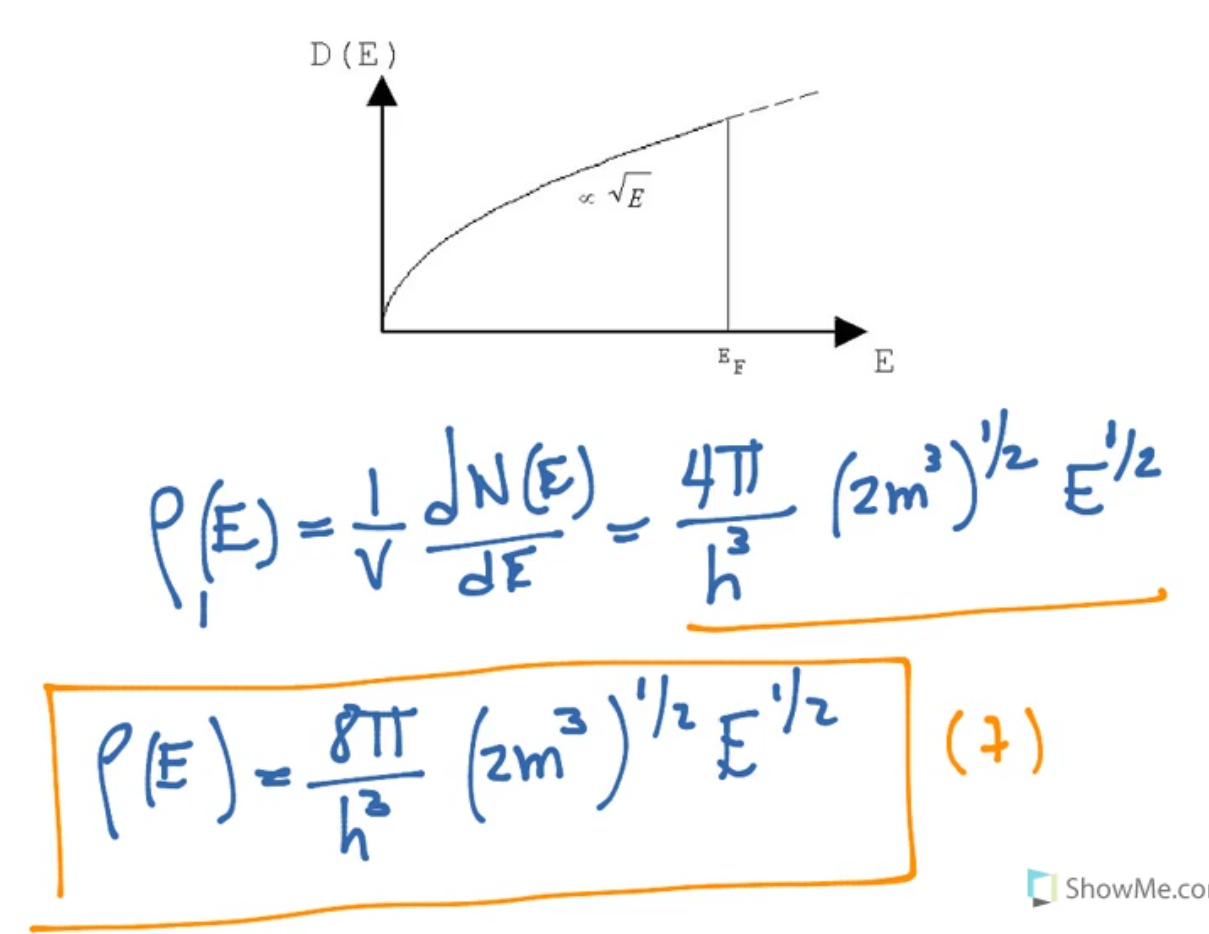 D(E)
∝ √E
E_F
E
ρ₁(E) = 1/V dN(E)/dE = 4π/h³ (2m³)^1/2 E^1/2
ρ(E) = 8π/h³ (2m³)^1/2 E^1/2 (7)
ShowMe.co